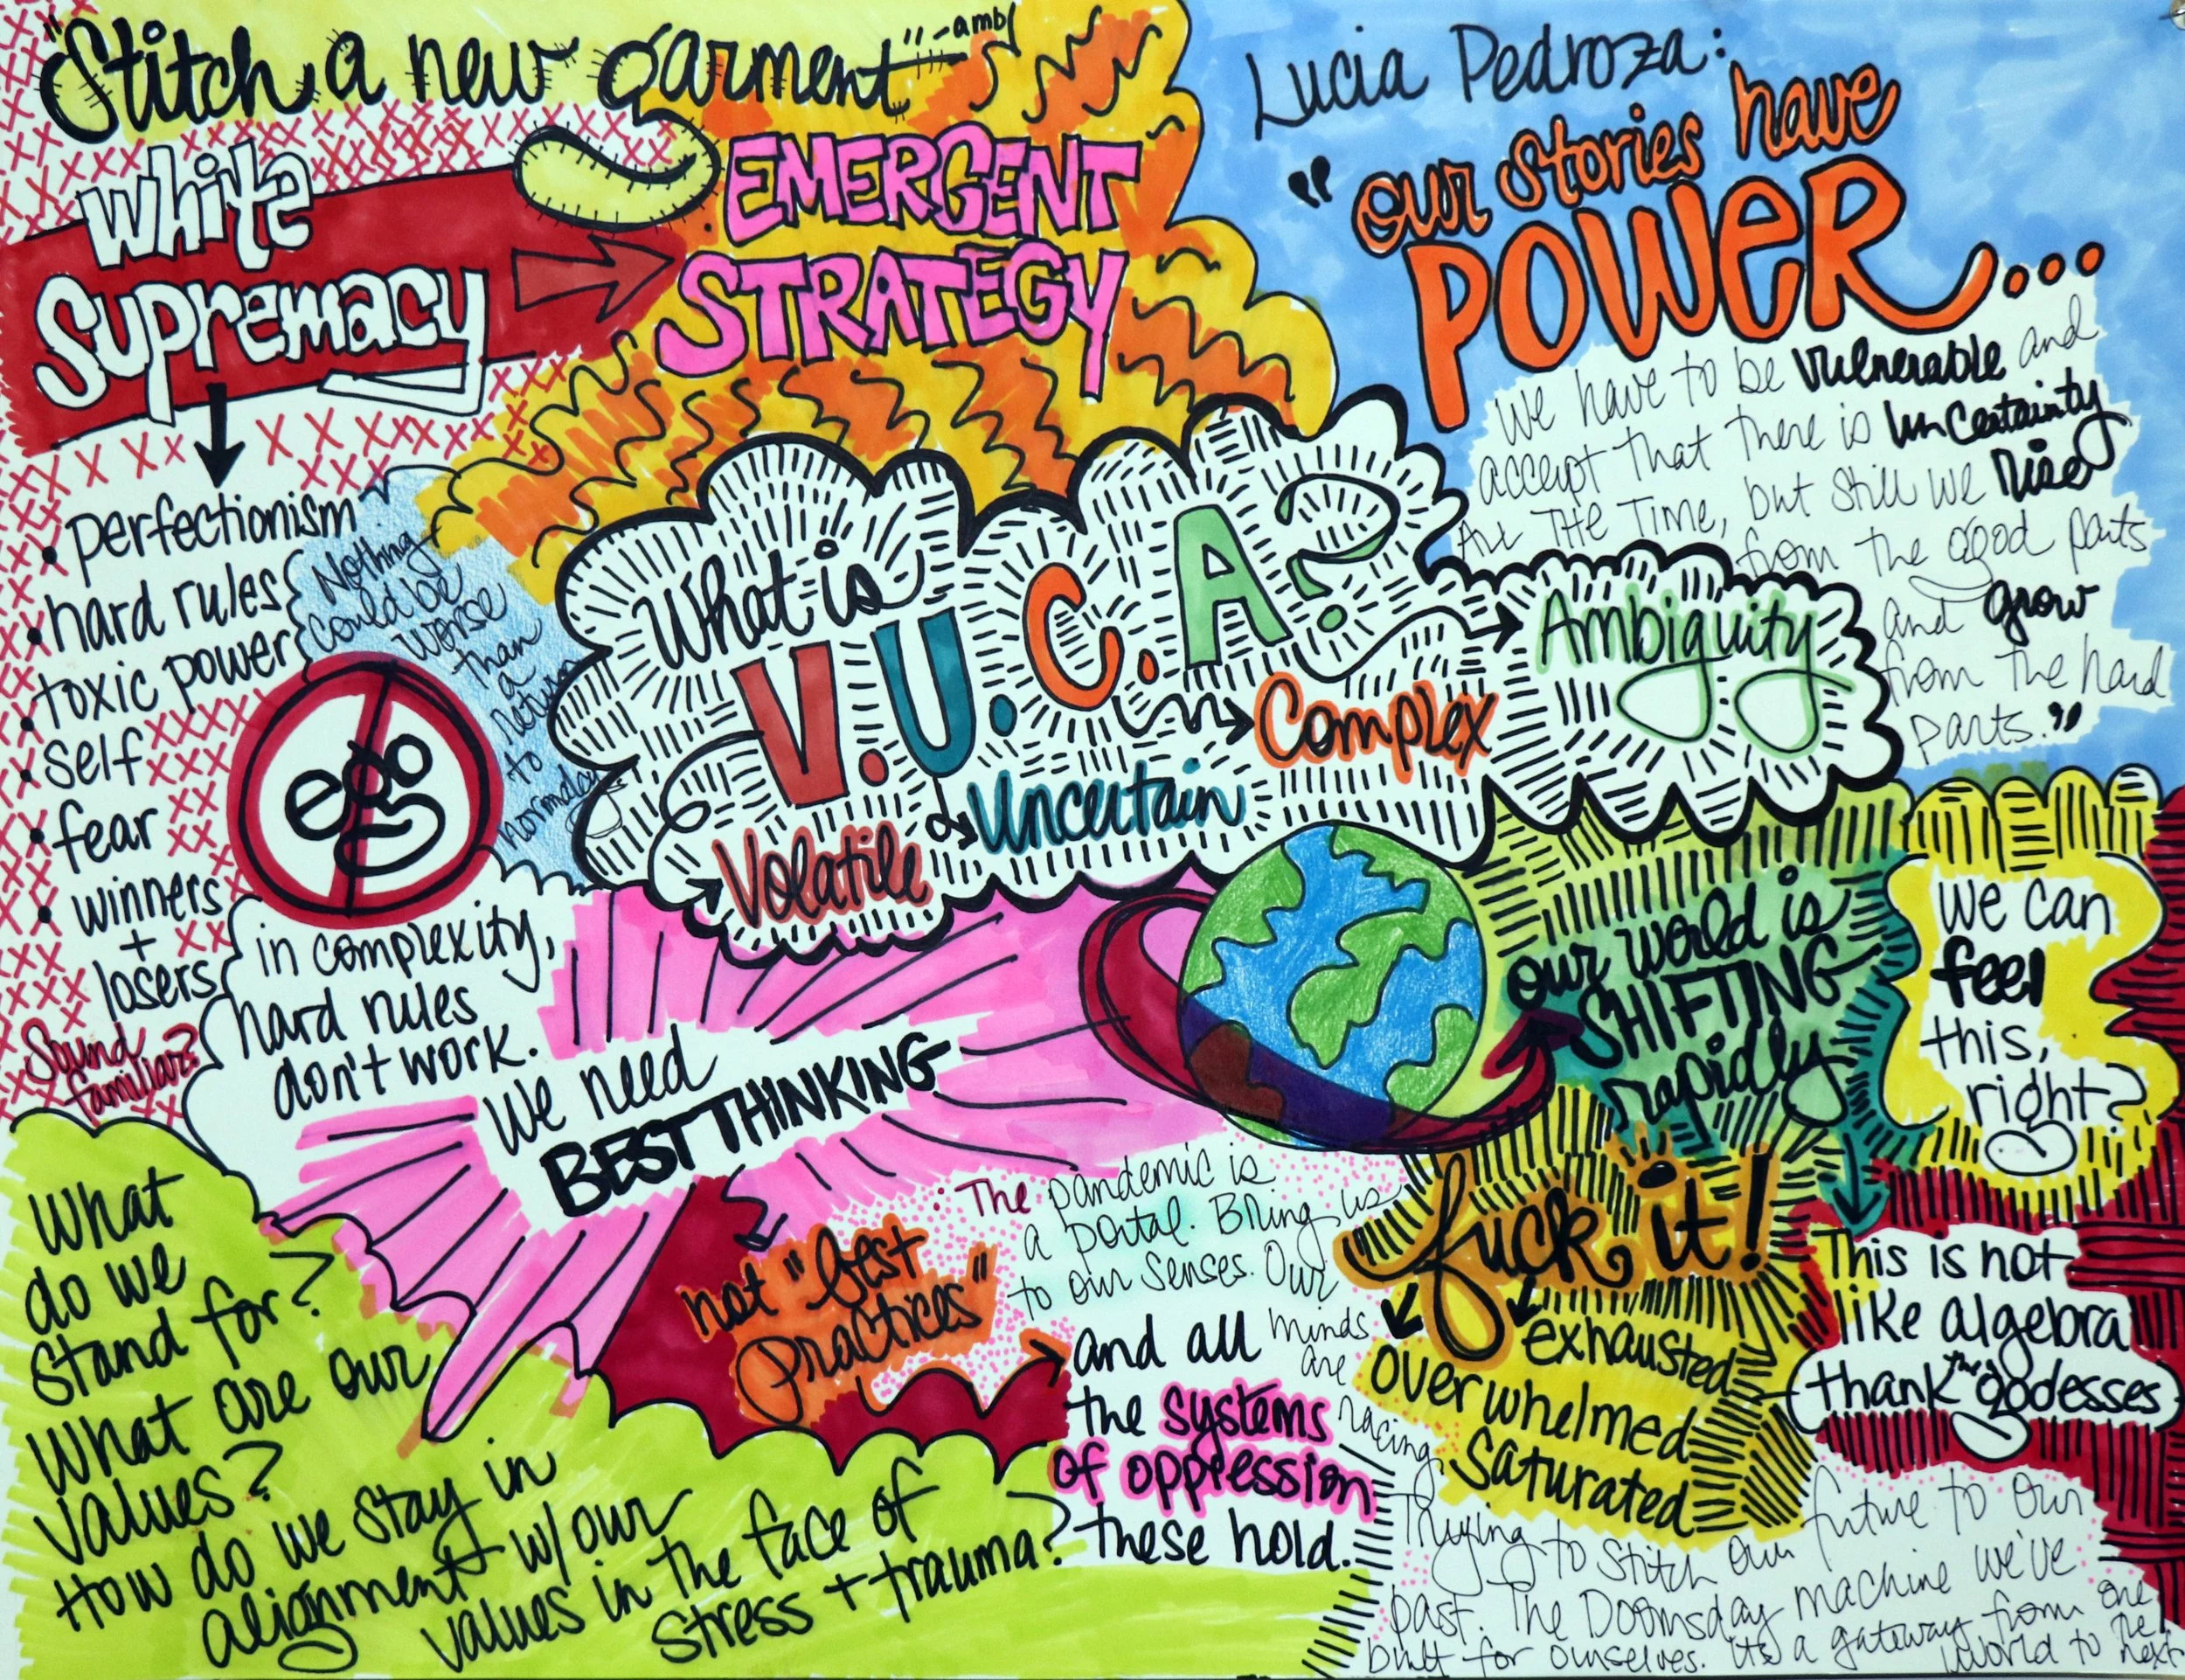 "Stitch a new garment" -amb
White
Supremacy
EMERGENT
STRATEGY
• perfectionism
• hard rules
• toxic power
• self
• fear
• winners
+
losers
Sound
familiar?
Nothing
could be
worse
than
a
return
to
normalcy
ego
in complexity,
hard rules
don't work.
We need
BEST THINKING
not "best
practices"
and all
the systems
of oppression
these hold.
What
do we
stand for?
What are our
values?
How do we stay in
alignment w/our
values in the face of
stress + trauma?
What is
V.U.C.A?
Volatile
Uncertain
Complex
Ambiguity
Lucia Pedroza:
"our stories have
POWER...
We have to be vulnerable and
accept that there is uncertainty
All THE TIME, but still we rise
from the good parts
and grow
from the hard
parts."
our world is
SHIFTING
rapidly
We can
feel
this,
right?
This is not
like algebra
thank the godesses
fuck it!
exhausted
overwhelmed
saturated
The pandemic is
a portal. Bring us
to our senses. Our
minds
are
racing
Trying to stitch our future to our
past. The Doomsday machine we've
built for ourselves. Its a gateway from one
world to the
next